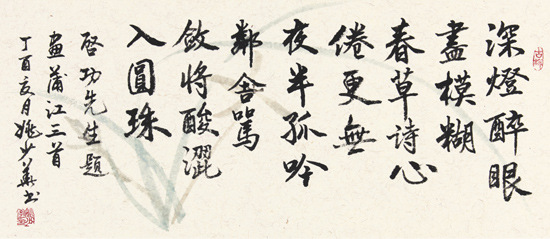 深燈醉眼
盡模糊
春草詩心
倦更無
夜半孤吟
鄰舍罵
敛將酸澀
入圓珠
啓功先生題
畫蒲江三首
丁酉亥月姚少華書